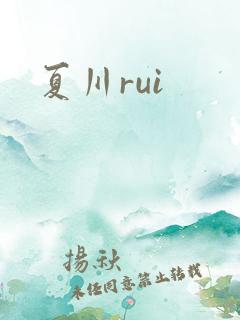 夏川rui
揚秋
未经同意禁止转载